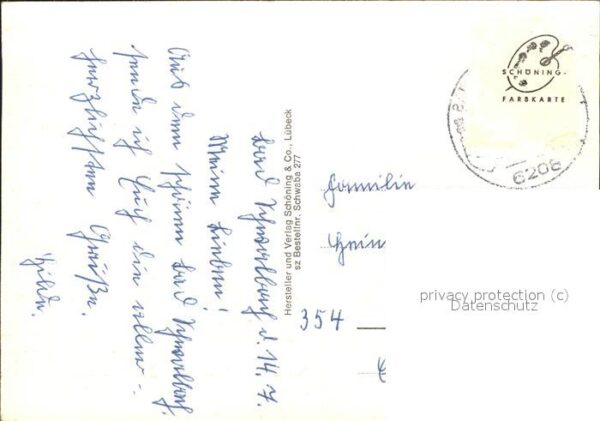 Bad Schwalbach d. 14. 7.
Meine Lieben!
Aus dem schönen Bad Schwalbach
sende ich Euch die aller-
herzlichsten Grüße.
Hilde.
Hersteller und Verlag Schöning & Co., Lübeck
sz Bestellnr. Schwaba 277
SCHÖNING-
FARBKARTE
6208
Familie
Hein
354
privacy protection (c)
Datenschutz